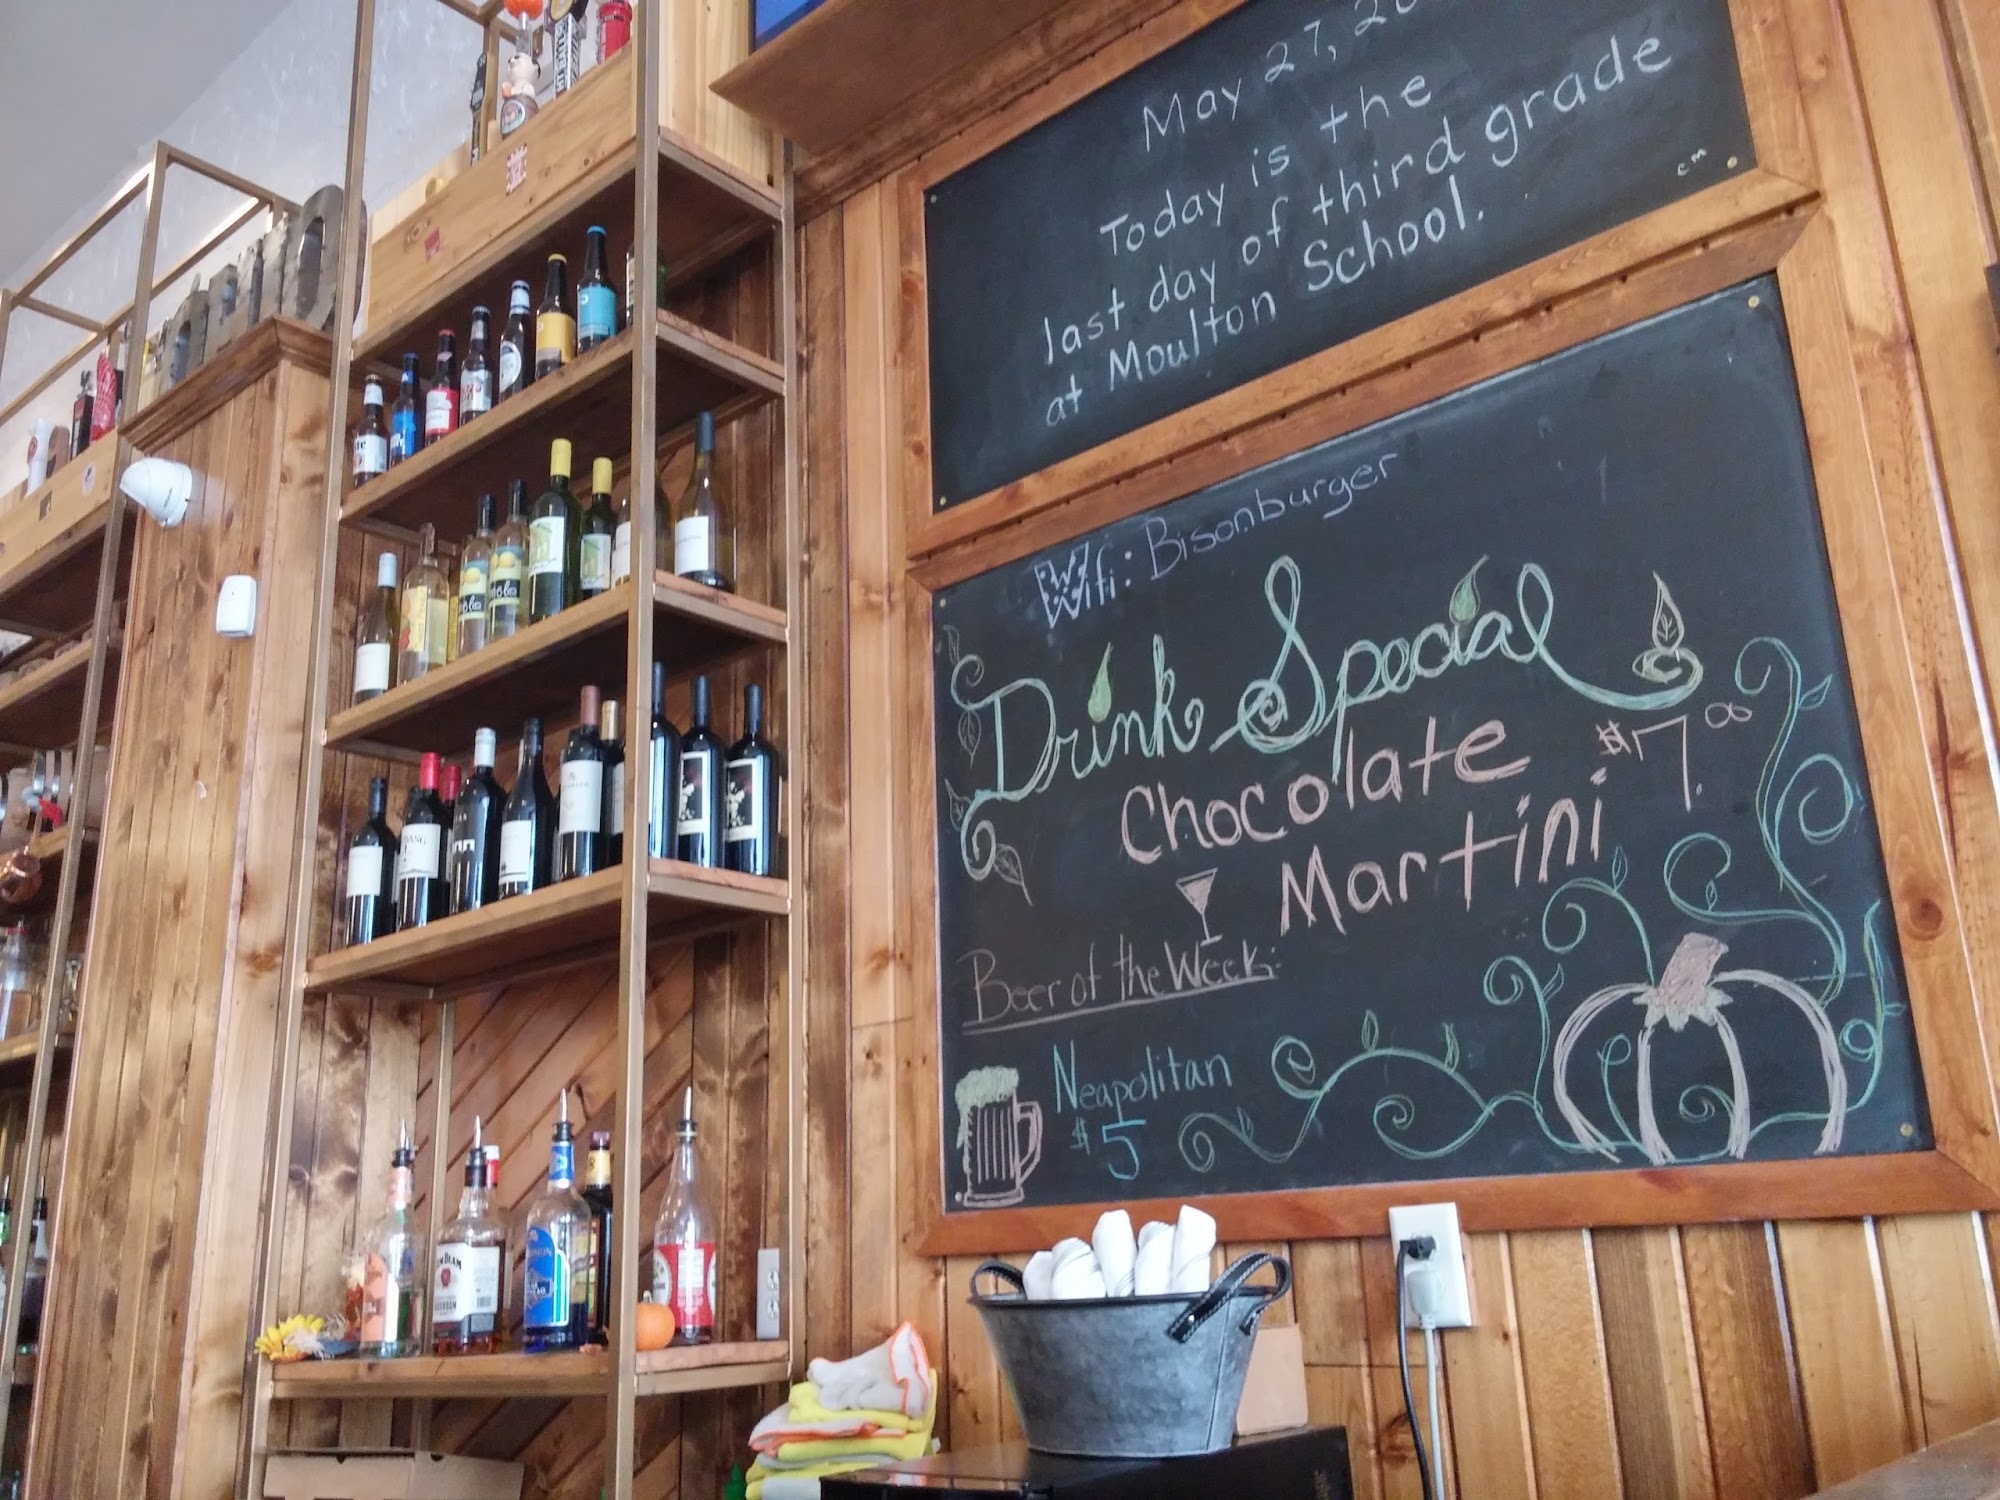 May 27, 20
Today is the
last day of third grade
at Moulton School.
cm
Wifi: Bisonburger
Drink Special
Chocolate $7.00
Martini
Beer of the Week:
Neapolitan
$5
JIM BEAM
BOURBON